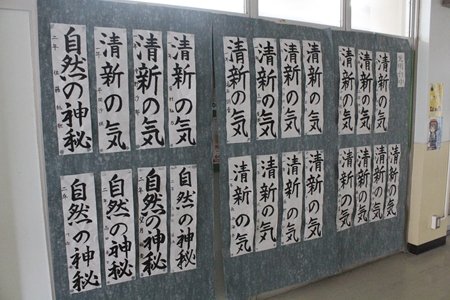 清新の気
清新の気
清新の気
清新の気
清新の気
清新の気
清新の気
清新の気
清新の気
清新の気
自然の神秘
二年
清新の気
清新の気
清新の気
清新の気
清新の気
清新の気
清新の気
清新の気
自然の神秘
自然の神秘
自然の神秘
自然の神秘
二年